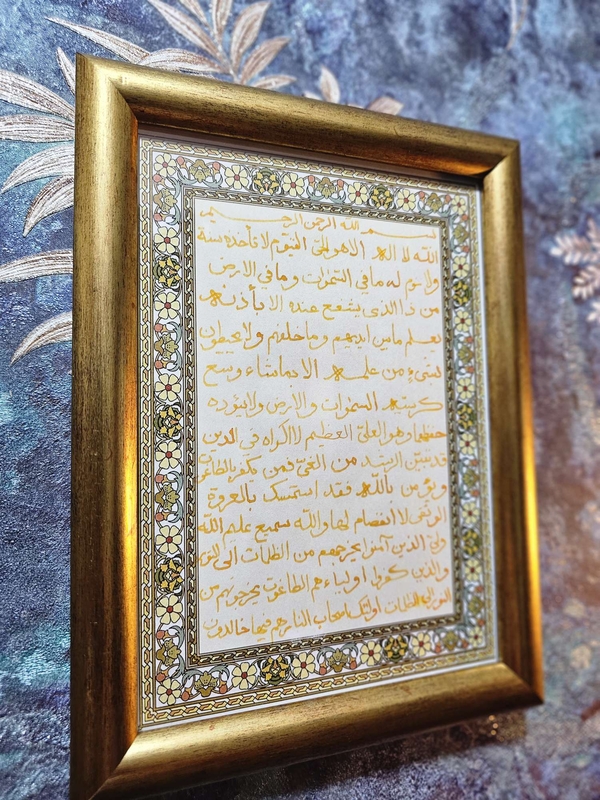 بسم الله الرحمن الرحيم
الله لا اله الا هو الحي القيوم لا تأخذه سنة
ولا نوم له ما في السموات و ما في الارض
من ذا الذي يشفع عنده الا بأذنه
يعلم ما بين ايديهم و ما خلفهم و لا يحيطون
بشيء من علمه الا بما شاء و وسع
كرسيه السموات و الارض ولا يؤده
حفظهما و هو العلي العظيم لا اكراه في الدين
قد تبين الرشد من الغي فمن يكفر بالطاغوت
و يؤمن بالله فقد استمسك بالعروة
الوثقى لا انفصام لها و الله سميع عليم الله
ولي الذين آمنوا يخرجهم من الظلمات الى النور
و الذين كفروا اولياءهم الطاغوت يخرجونهم من
النور الى الظلمات اولئك اصحاب النار هم فيها خالدون